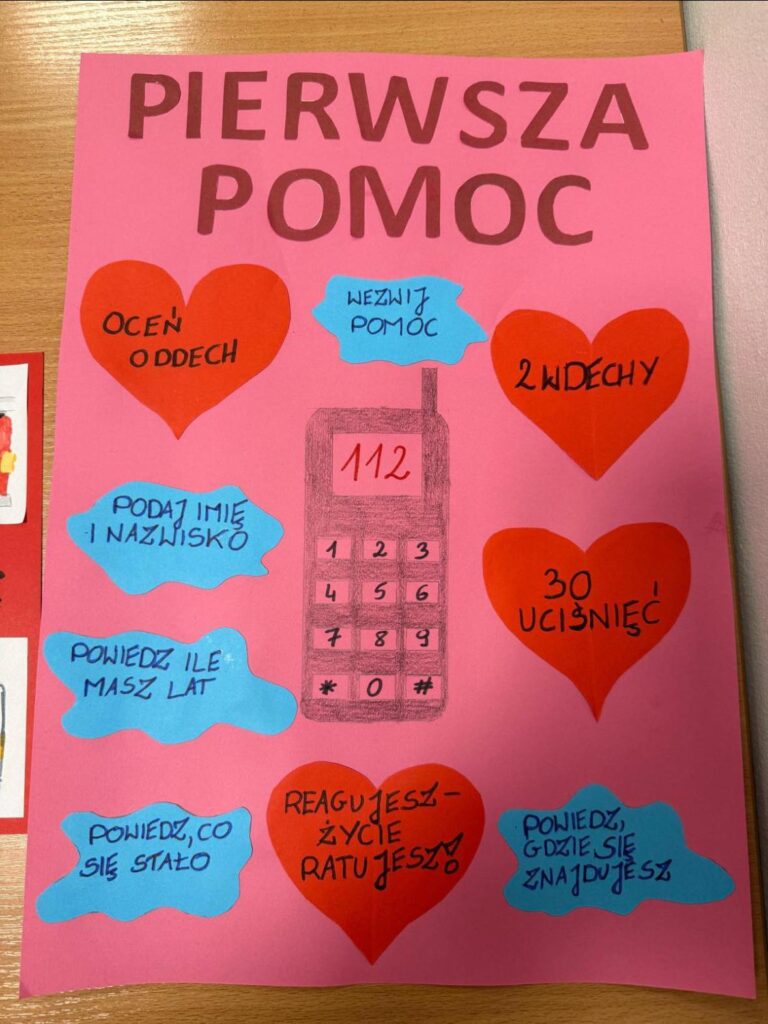 PIERWSZA
POMOC
OCEŃ
ODDECH
WEZWIJ
POMOC
2 WDECHY
112
PODAJ IMIĘ
I NAZWISKO
1 2 3
4 5 6
7 8 9
* 0 #
30
UCIŚNIĘĆ
POWIEDZ ILE
MASZ LAT
POWIEDZ, CO
SIĘ STAŁO
REAGUJESZ-
ŻYCIE
RATUJESZ!
POWIEDZ,
GDZIE SIĘ
ZNAJDUJESZ